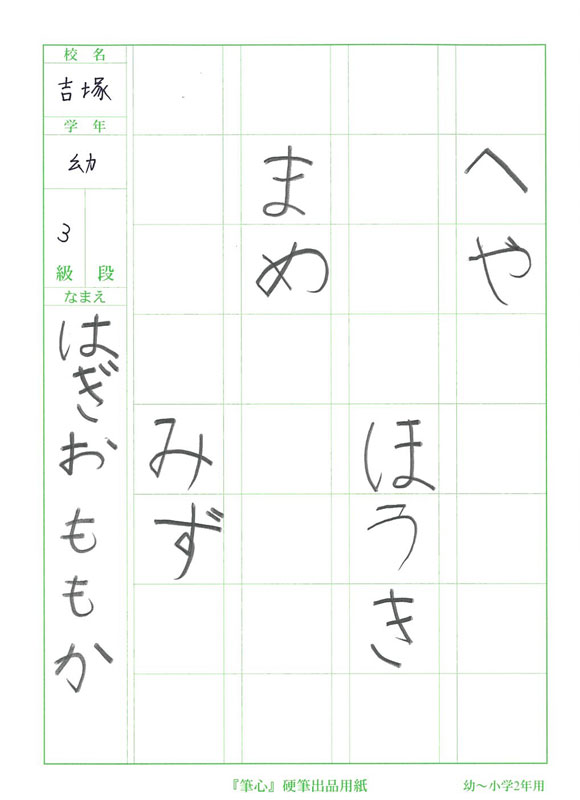 へや
ほうき
まめ
みず
校名
吉塚
学年
幼
3
級 段
なまえ
はぎお ももか
『筆心』硬筆出品用紙
幼～小学2年用